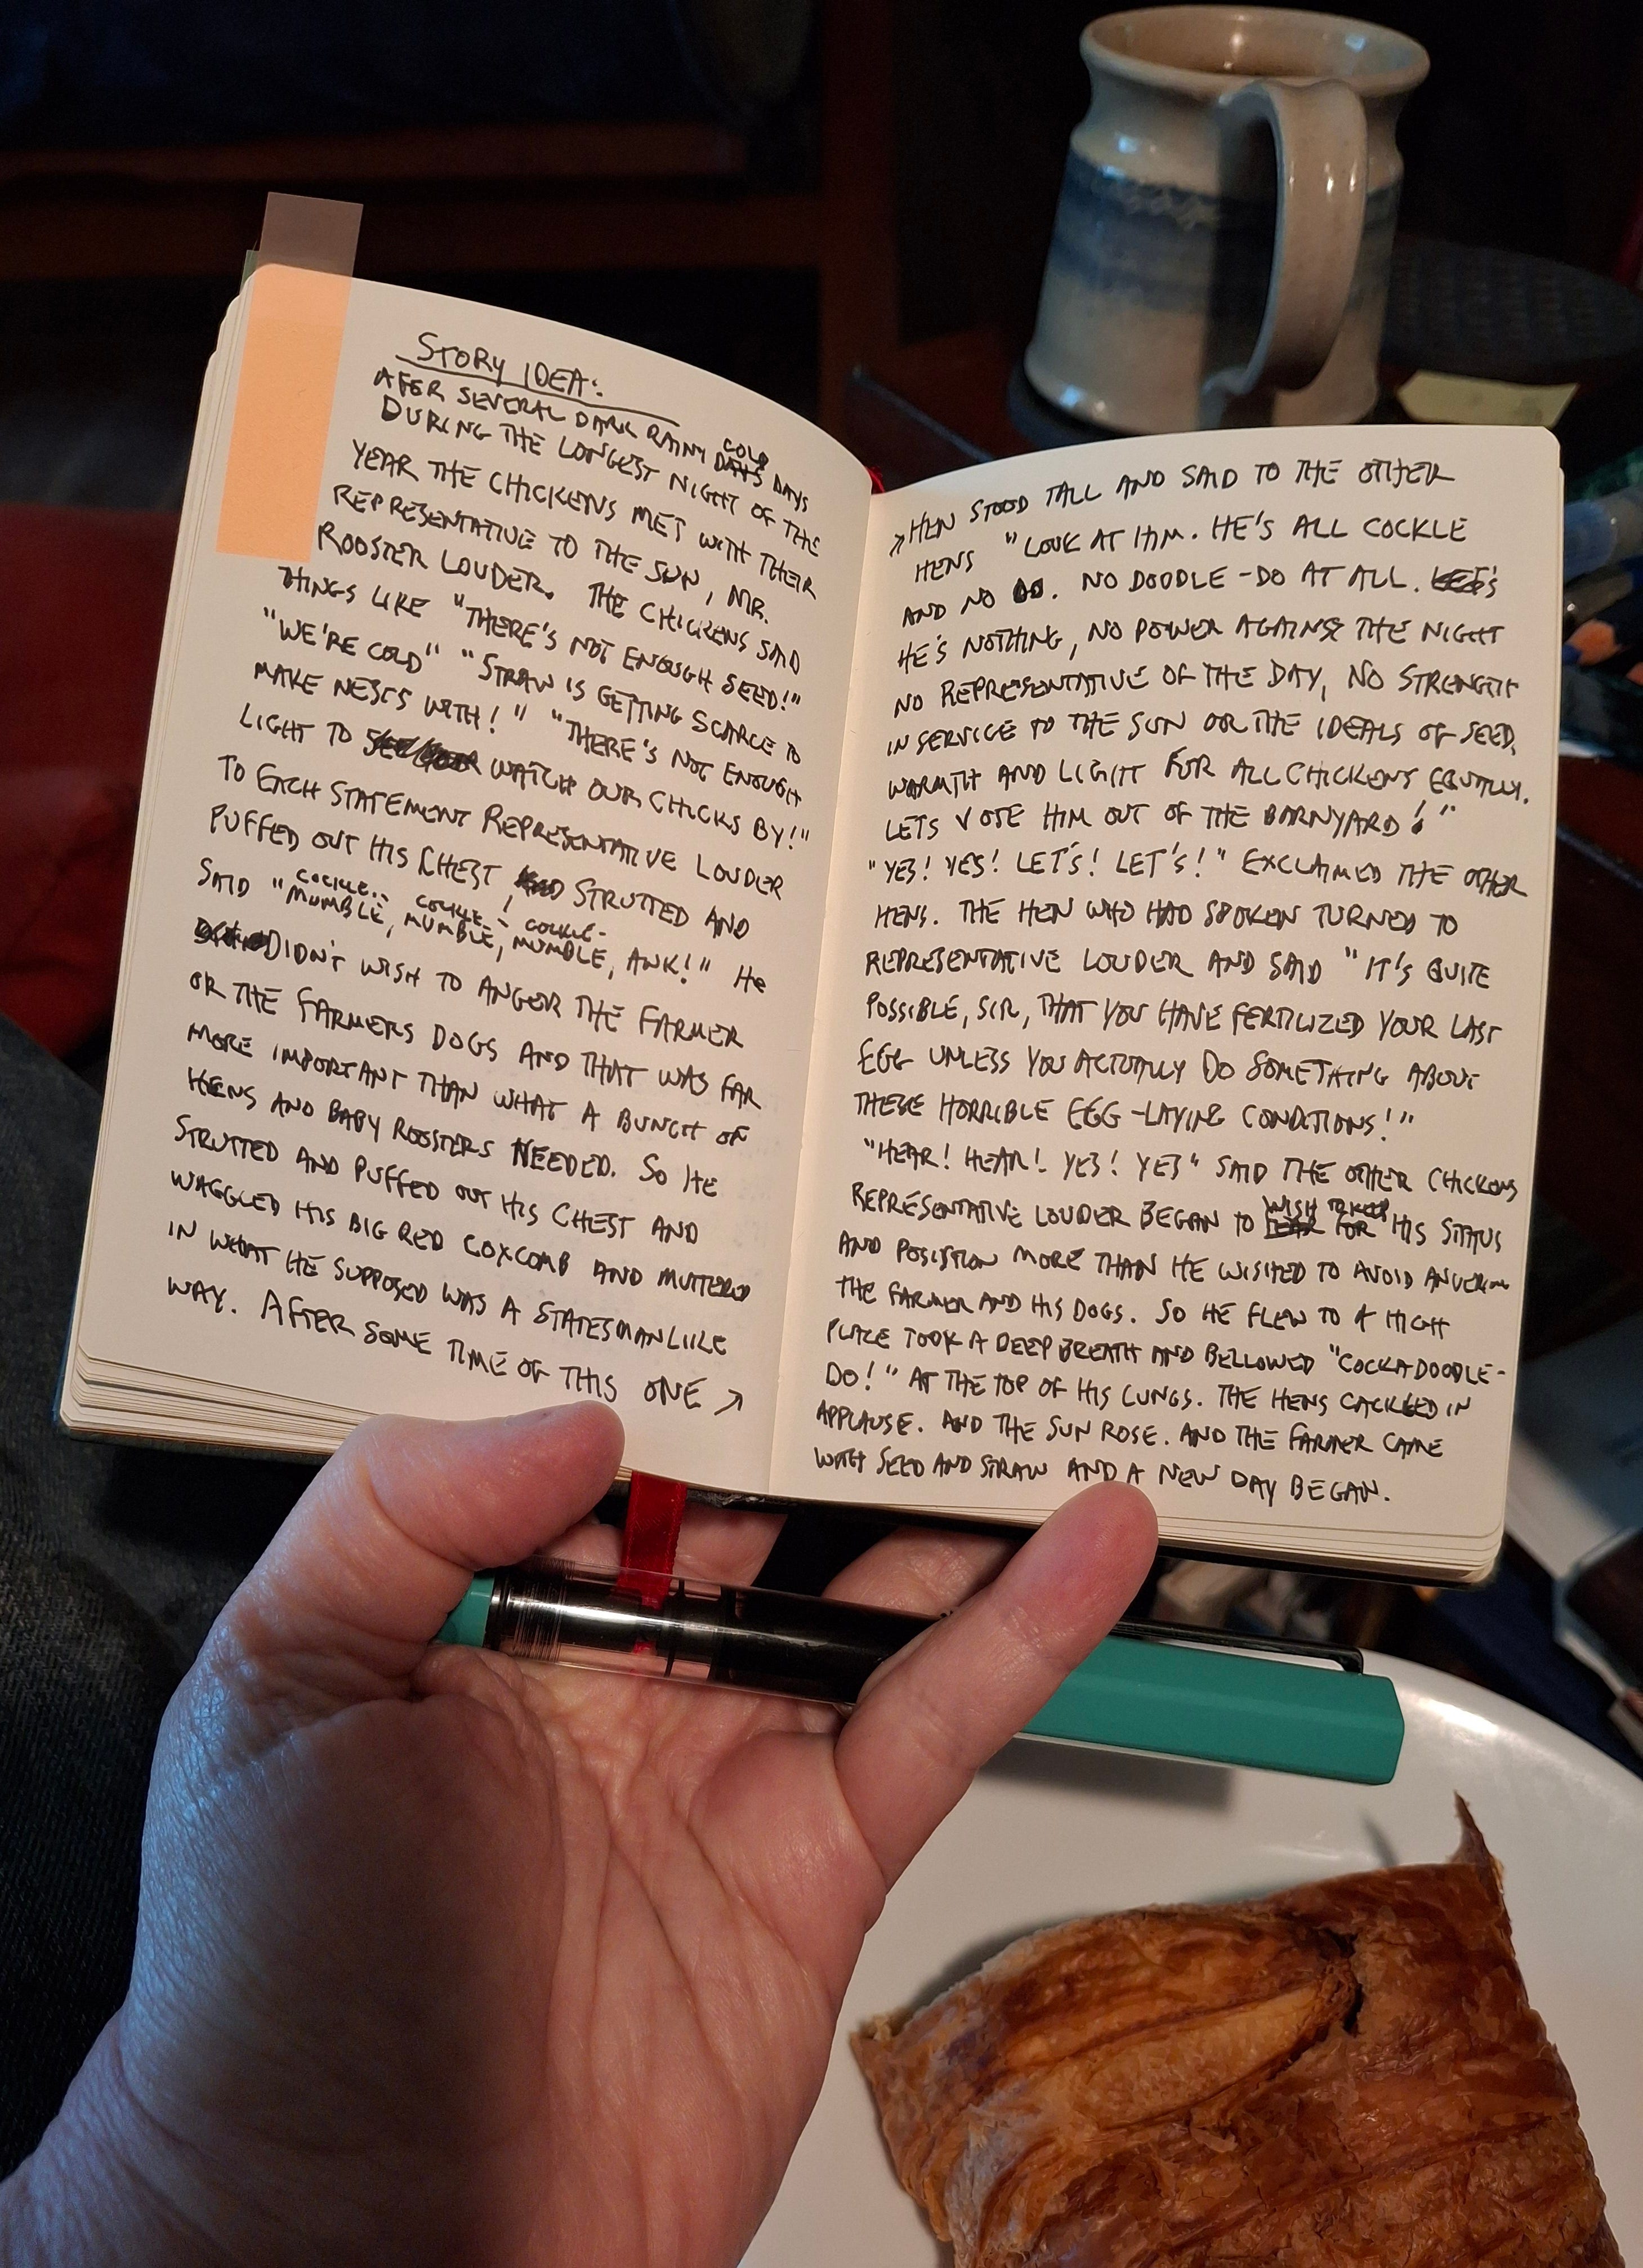 STORY IDEA:
AFER SEVERAL DARK RAINY COLD DAYS
DURING THE LONGEST NIGHT OF THE
YEAR THE CHICKENS MET WITH THEIR
REPRESENTATIVE TO THE SUN, MR.
ROOSTER LOUDER. THE CHICKENS SAID
THINGS LIKE "THERE'S NOT ENOUGH SEED!"
"WE'RE COLD" "STRAW IS GETTING SCARCE TO
MAKE NESTS WITH!" "THERE'S NOT ENOUGH
LIGHT TO WATCH OUR CHICKS BY!"
TO EACH STATEMENT REPRESENTATIVE LOUDER
PUFFED OUT HIS CHEST STRUTTED AND
COCKLE.. COCKLE.. ! COCKLE-
SAID "MUMBLE, MUMBLE, MUMBLE, AWK!" He
DIDN'T WISH TO ANGER THE FARMER
OR THE FARMERS DOGS AND THAT WAS FAR
MORE IMPORTANT THAN WHAT A BUNCH OF
HENS AND BABY ROOSTERS NEEDED. SO HE
STRUTTED AND PUFFED OUT HIS CHEST AND
WAGGLED HIS BIG RED COXCOMB AND MUTTERED
IN WHAT HE SUPPOSED WAS A STATESMANLIKE
WAY. AFTER SOME TIME OF THIS ONE →
→ HEN STOOD TALL AND SAID TO THE OTHER
HENS "LOOK AT HIM. HE'S ALL COCKLE
AND NO DO. NO DOODLE-DO AT ALL. LET'S
HE'S NOTHING, NO POWER AGAINST THE NIGHT
NO REPRESENTATIVE OF THE DAY, NO STRENGTH
IN SERVICE TO THE SUN OR THE IDEALS OF SEED,
WARMTH AND LIGHT FOR ALL CHICKENS EQUALLY.
LETS VOTE HIM OUT OF THE BARNYARD!"
"YES! YES! LET'S! LET'S!" EXCLAIMED THE OTHER
HENS. THE HEN WHO HAD SPOKEN TURNED TO
REPRESENTATIVE LOUDER AND SAID "IT'S QUITE
POSSIBLE, SIR, THAT YOU HAVE FERTILIZED YOUR LAST
EGG UNLESS YOU ACTUALLY DO SOMETHING ABOUT
THESE HORRIBLE EGG-LAYING CONDITIONS!"
"HEAR! HEAR! YES! YES" SAID THE OTHER CHICKENS
REPRESENTATIVE LOUDER BEGAN TO WISH TO KEEP HIS STATUS
AND POSISTION MORE THAN HE WISHED TO AVOID ANGERING
THE FARMER AND HIS DOGS. SO HE FLEW TO A HIGH
PLACE TOOK A DEEP BREATH AND BELLOWED "COCKADOODLE-
DO!" AT THE TOP OF HIS LUNGS. THE HENS CACKLED IN
APPLAUSE. AND THE SUN ROSE. AND THE FARMER CAME
WITH SEED AND STRAW AND A NEW DAY BEGAN.